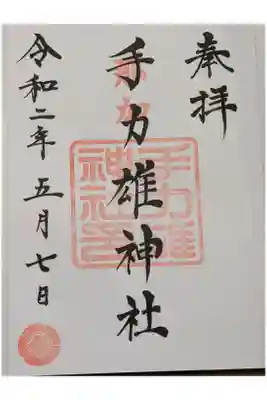 奉拝
手力雄神社
手力雄
神社
令和二年五月七日